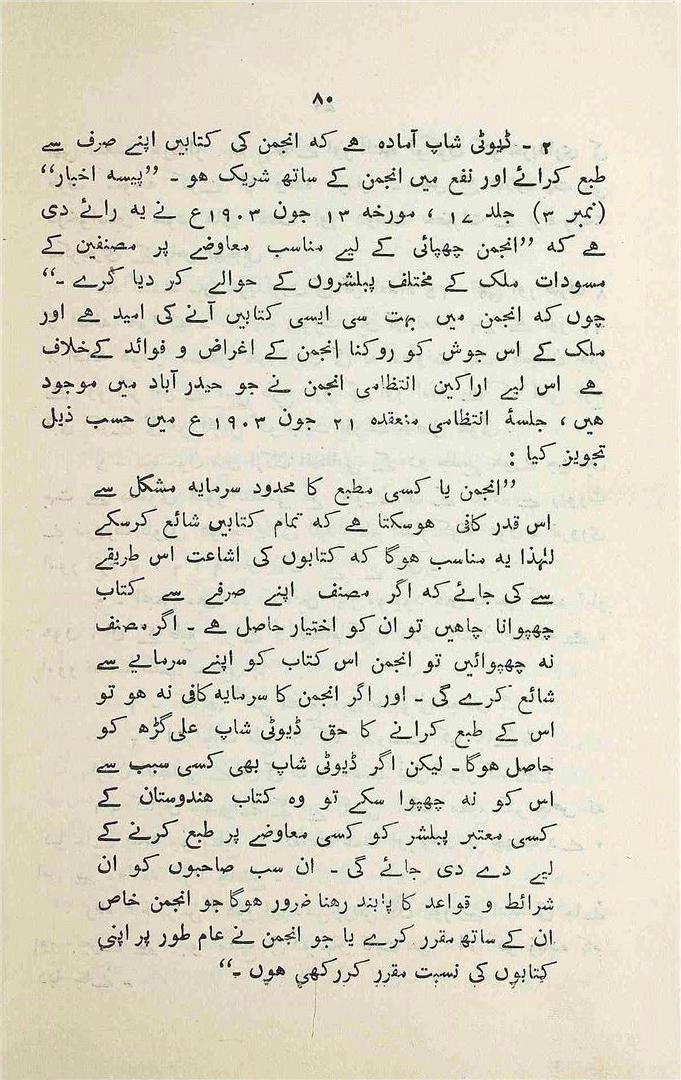 ۸۰
۲ - ڈیوٹی شاپ آمادہ ہے کہ انجمن کی کتابیں اپنے صرف سے
طبع کرائے اور نفع میں انجمن کے ساتھ شریک ہو ۔ ”پیسہ اخبار“
(نمبر ۳) جلد ۱۷ ، مورخہ ۱۳ جون ۱۹۰۳ع نے یہ رائے دی
ہے کہ ”انجمن چھپائی کے لیے مناسب معاوضے پر مصنفین کے
مسودات ملک کے مختلف پبلشروں کے حوالے کر دیا کرے ۔“
چوں کہ انجمن میں بہت سی ایسی کتابیں آنے کی امید ہے اور
ملک کے اس جوش کو روکنا انجمن کے اغراض و فوائد کے خلاف
ہے اس لیے اراکین انتظامی انجمن نے جو حیدر آباد میں موجود
ہیں ، جلسۂ انتظامی منعقدہ ۲۱ جون ۱۹۰۳ع میں حسب ذیل
تجویز کیا :
”انجمن یا کسی مطبع کا محدود سرمایہ مشکل سے
اس قدر کافی ہوسکتا ہے کہ تمام کتابیں شائع کرسکے
لہٰذا یہ مناسب ہوگا کہ کتابوں کی اشاعت اس طریقے
سے کی جائے کہ اگر مصنف اپنے صرفے سے کتاب
چھپوانا چاہیں تو ان کو اختیار حاصل ہے ۔ اگر مصنف
نہ چھپوائیں تو انجمن اس کتاب کو اپنے سرمایے سے
شائع کرے گی ۔ اور اگر انجمن کا سرمایہ کافی نہ ہو تو
اس کے طبع کرانے کا حق ڈیوٹی شاپ علی گڑھ کو
حاصل ہوگا ۔ لیکن اگر ڈیوٹی شاپ بھی کسی سبب سے
اس کو نہ چھپوا سکے تو وہ کتاب ہندوستان کے
کسی معتبر پبلشر کو کسی معاوضے پر طبع کرنے کے
لیے دے دی جائے گی ۔ ان سب صاحبوں کو ان
شرائط و قواعد کا پابند رہنا ضرور ہوگا جو انجمن خاص
ان کے ساتھ مقرر کرے یا جو انجمن نے عام طور پر اپنی
کتابوں کی نسبت مقرر کر رکھی ہوں ۔“